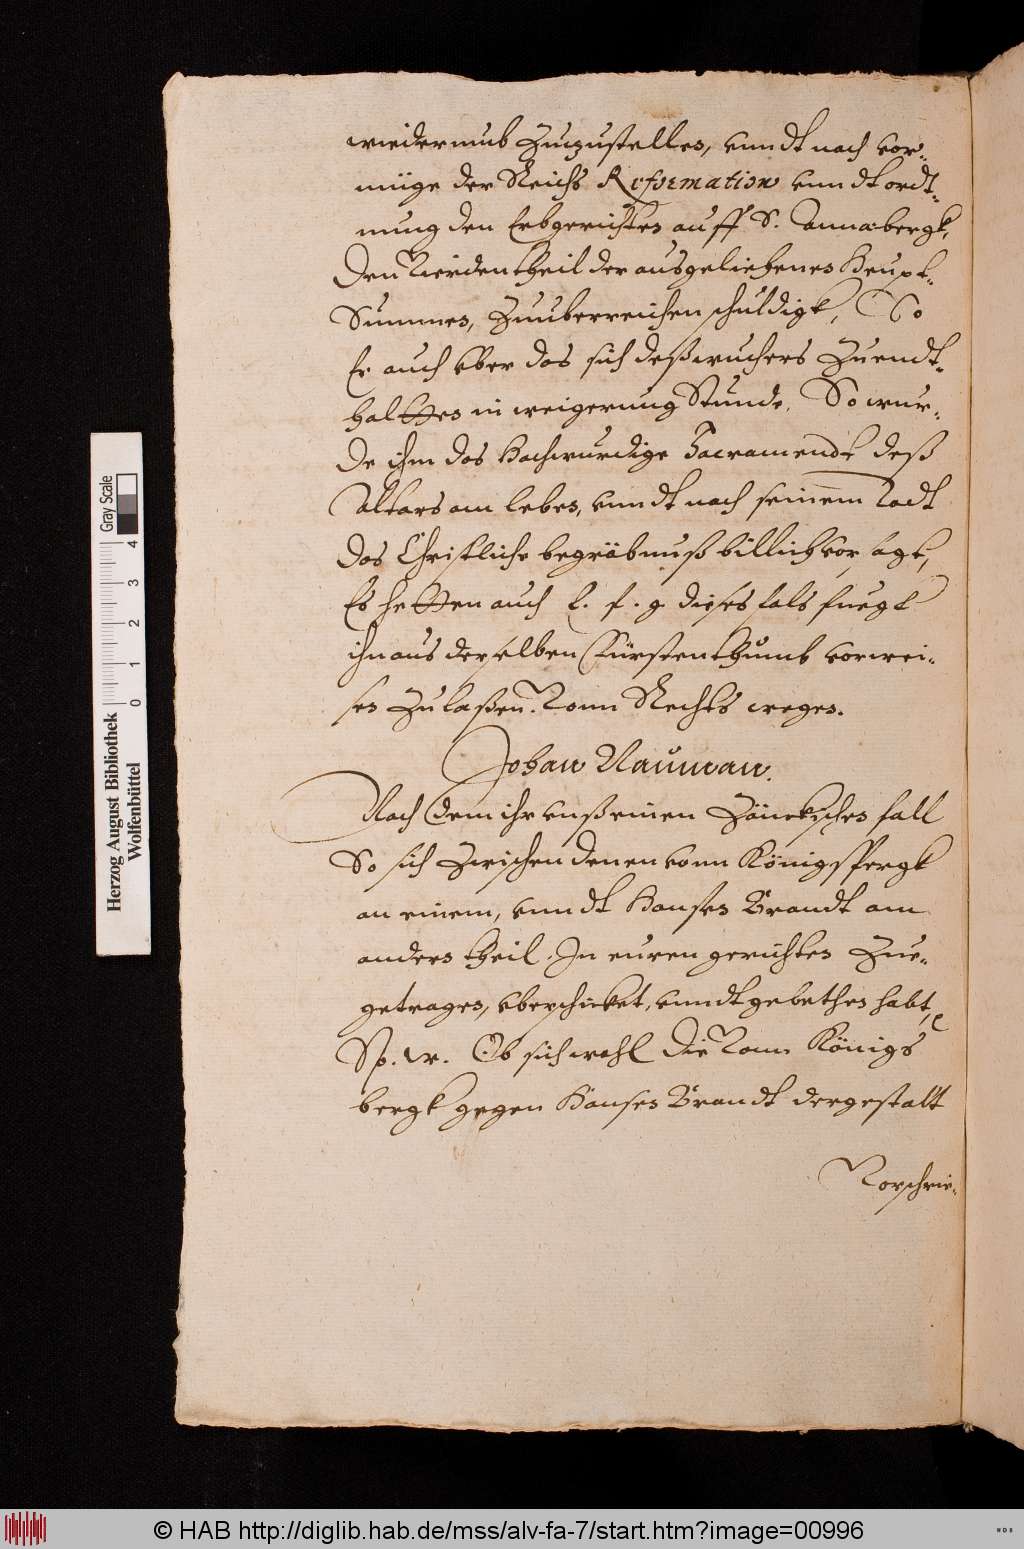 wiedermub Zuzustellen, vnndt nach vor-
müge der Reichs Reformation vnndt ordt-
nung den Erbgerichten auff S. Annabergk,
Den Vierden theil der ausgeliehenen Heupt-
Summen, Zuuberreichen schuldigk, So
Er auch vber das sich deß wuchers Zuendt-
haltten in weigerung Stunde, So wur-
de ihm das Hochwurdige Sacramendt deß
Altars am leben, vnndt nach seinem Todt
das Christliche begräbnuß billich vorsagt,
Es hetten auch E. f. g. dieses fals fuegk
ihn aus derselben Fürstenthumb vorwei-
sen Zulaßen. Vonn Rechts wegen.
Johan Nauman.
Nach dem ihr vnß einen Zänckischen fall
So sich Zwischen denen vonn Königspergk
an einem, vnndt Hansen Brandt am
andern theil. In euren gerichten Zue-
getragen, vberschicket, vnndt gebethen habt,
Sp. w. Ob sich wohl die Vonn Königs
bergk gegen Hansen Brandt dergestalt
Vorschrie-
Herzog August Bibliothek
Wolfenbüttel
0 1 2 3 4
Gray Scale
© HAB http://diglib.hab.de/mss/alv-fa-7/start.htm?image=00996